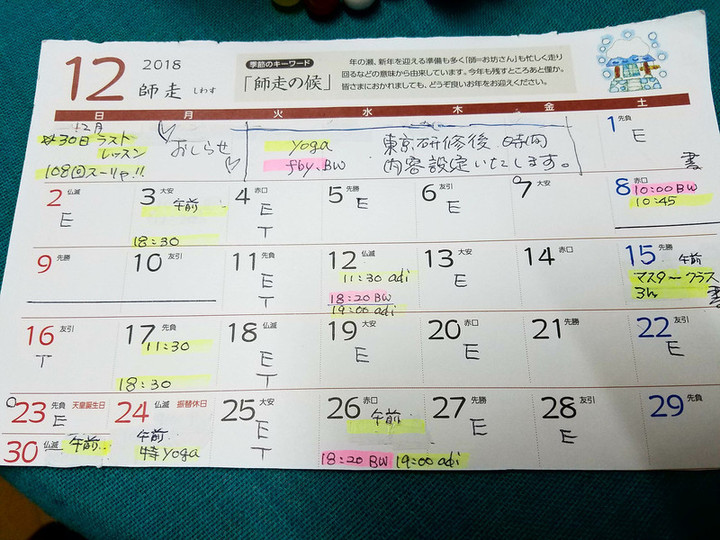 12
2018
師走 しわす
季節のキーワード
「師走の候」
年の瀬、新年を迎える準備も多く「師=お坊さん」も忙しく走り
回るなどの意味から由来しています。今年も残すところあと僅か。
皆さまにおかれましても、どうぞ良いお年をお迎えください。
日 月 火 水 木 金 土
12月
30日 ラスト
レッスン
108回スーリャ!!
おしらせ
yoga
fby. BW
東京研修後 時間
内容設定いたします。
1 先負
E
2 仏滅
E
3 大安
午前
18:30
4 赤口
E
T
5 先勝
E
6 友引
E
7 大安
8 赤口
10:00 BW
10:45
9 先勝
10 友引
11 先負
E
T
12 仏滅
11:30 adi
18:20 BW
19:00 adi
13 大安
E
14 赤口
15 先勝
午前
マスタークラス
3h
16 友引
T
17 先負
11:30
18:30
18 仏滅
E
T
19 大安
E
20 赤口
E
21 先勝
22 友引
E
23 先負 天皇誕生日
E
24 仏滅 振替休日
午前
特yoga
25 大安
E
T
26 赤口
午前
18:20 BW 19:00 adi
27 先勝
E
28 友引
E
29 先負
30 仏滅
午前